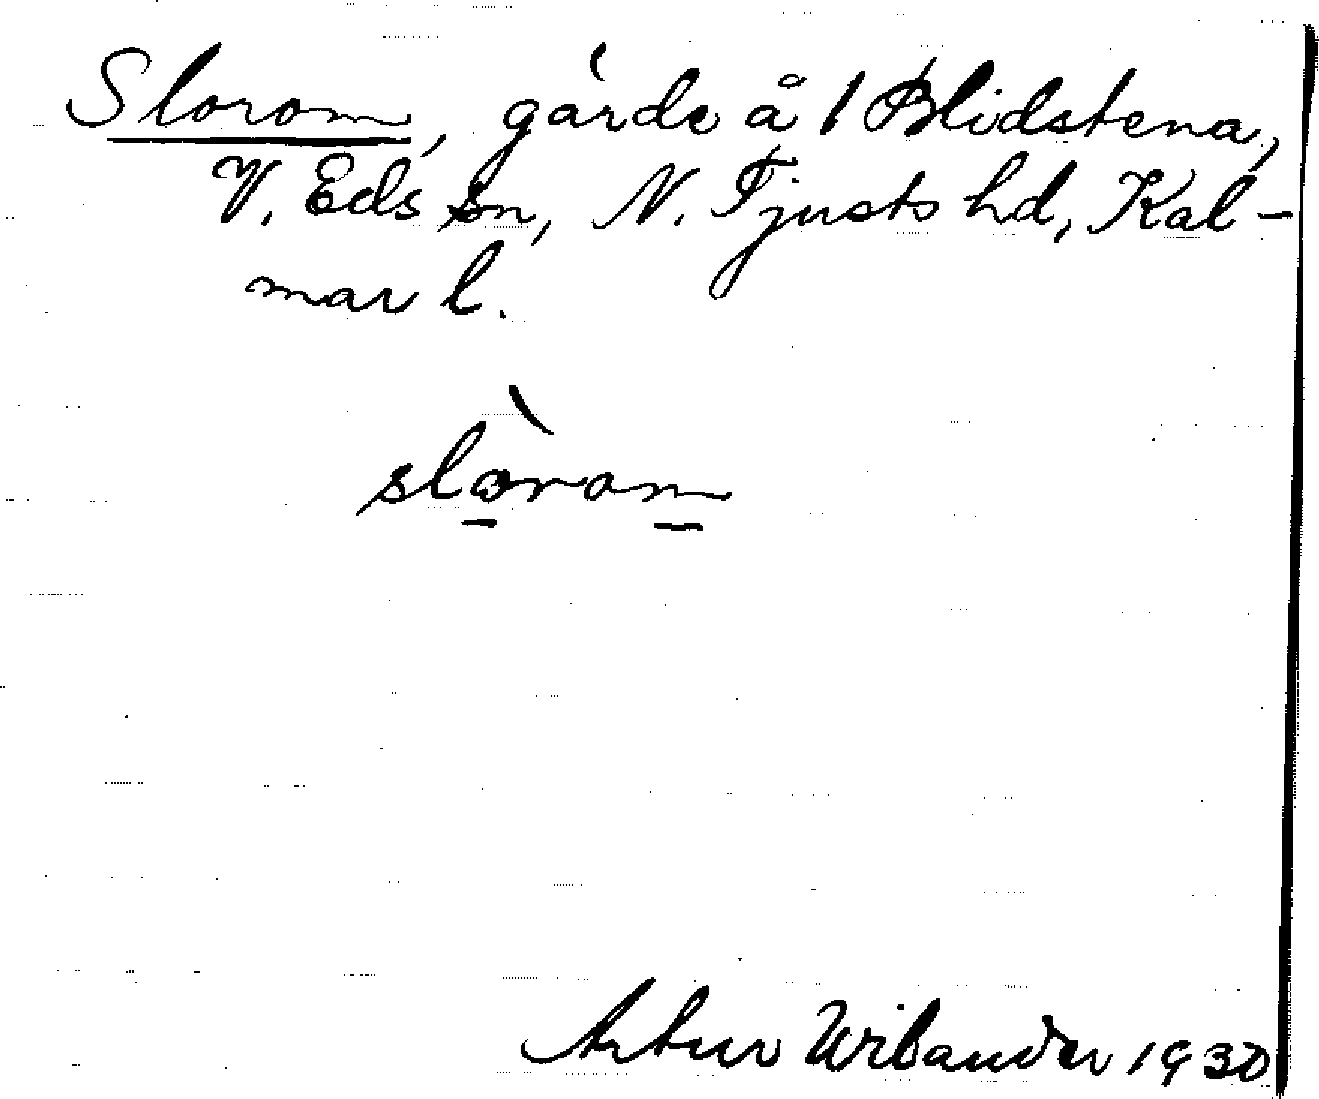 Slorom, gärde å 1 Blidstena,
V. Eds sn, N. Tjusts hd, Kal-
mar l.
slòrom
Artur Wilander 1930